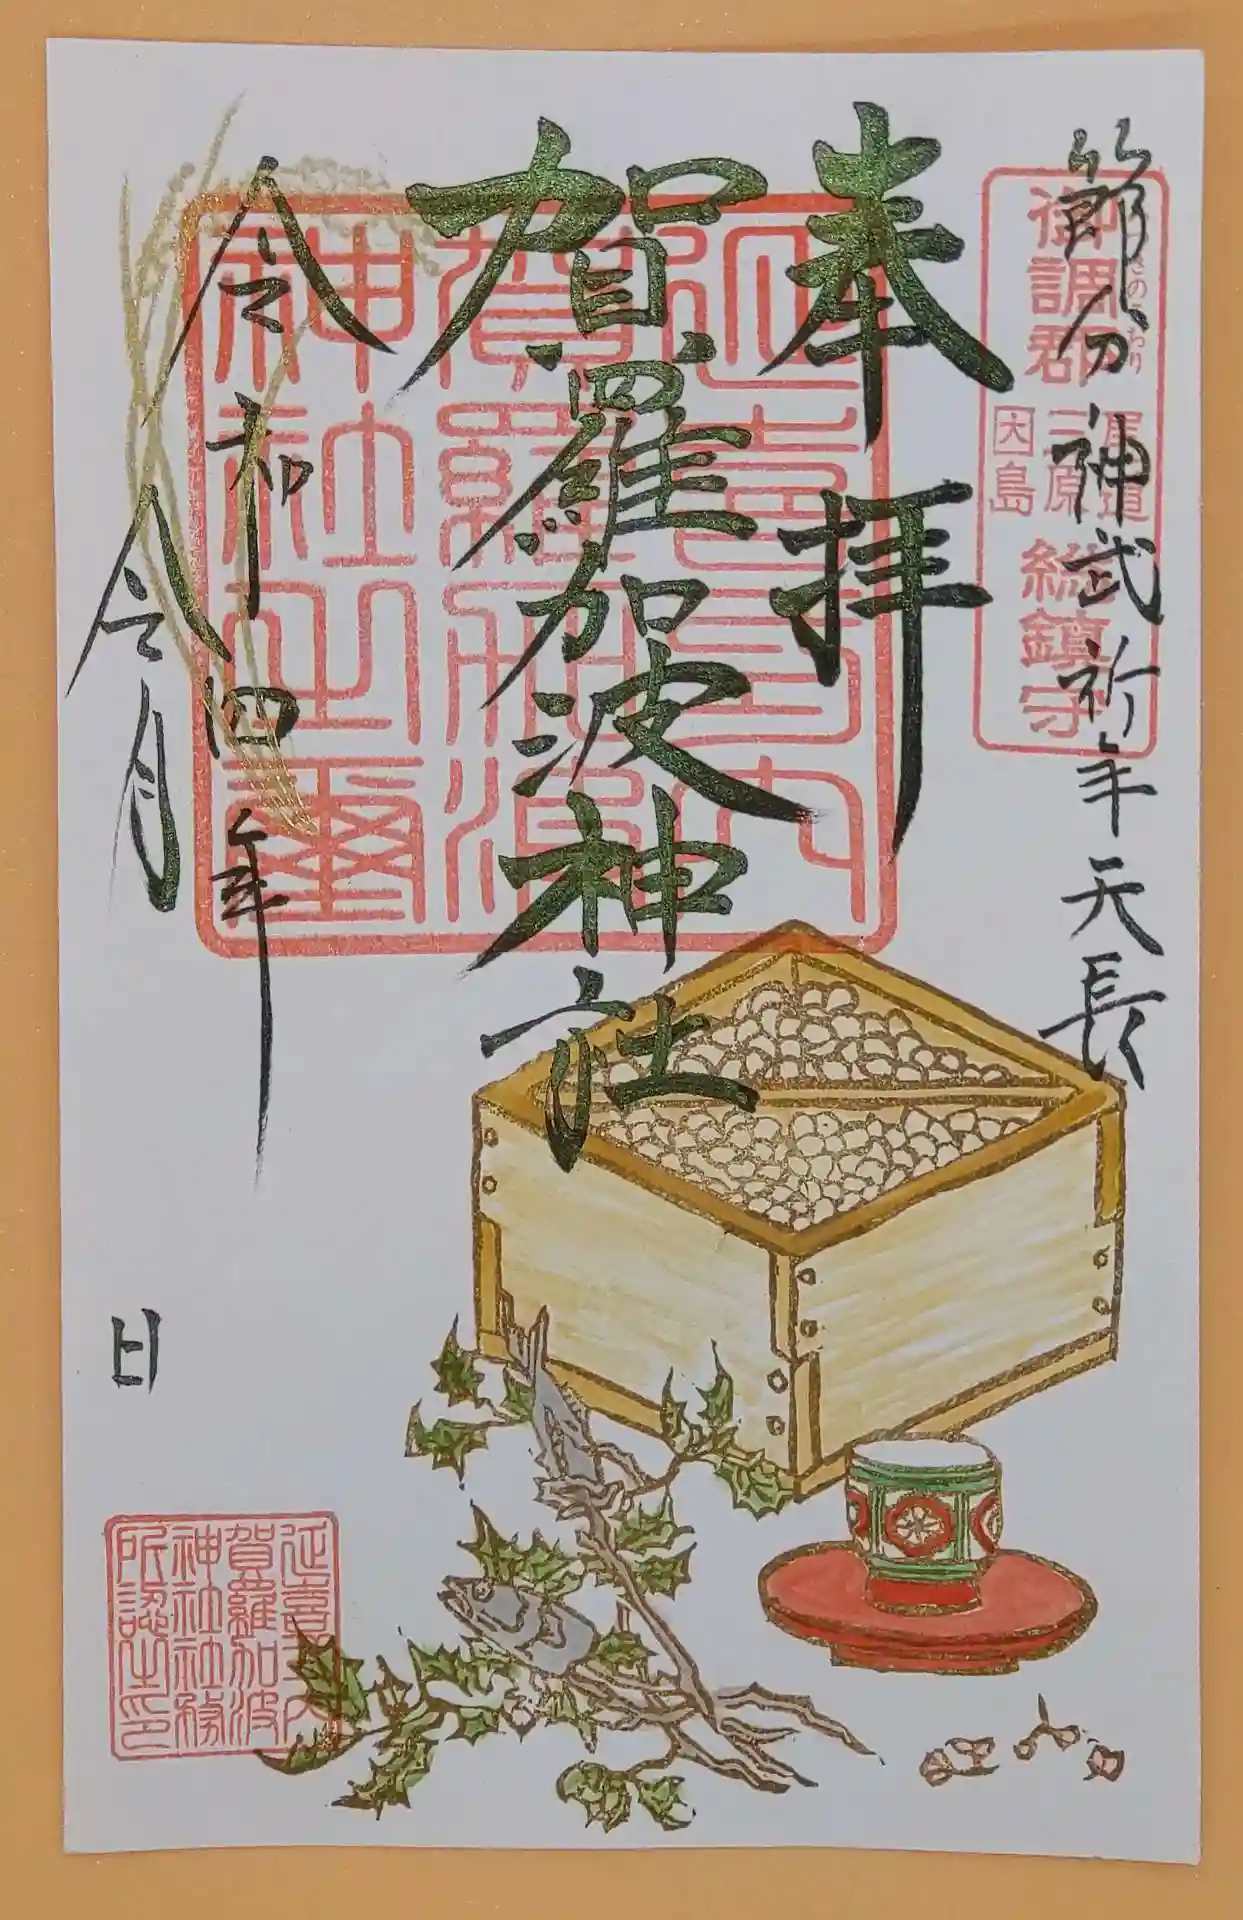 節分 神武祈年 天長
御調郡
みつきのこおり
尾道
三原
因島
総鎮守
奉拝
賀羅加波神社
延喜式内
賀羅加波
神社之璽
令和四年
令月
日
延喜式内
賀羅加波
神社社務
所認之印